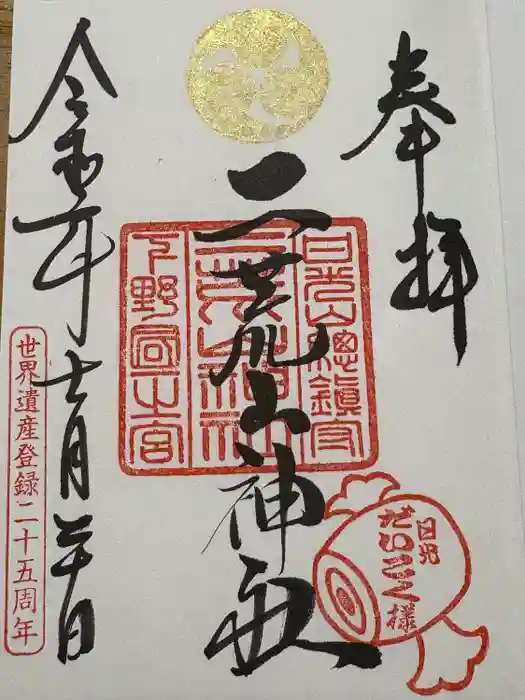 奉拝
二荒山神社
日光山總鎮守
二荒山神社
下野國一之宮
日光
だいこく様
令和年十一月二十日
世界遺産登録二十五周年